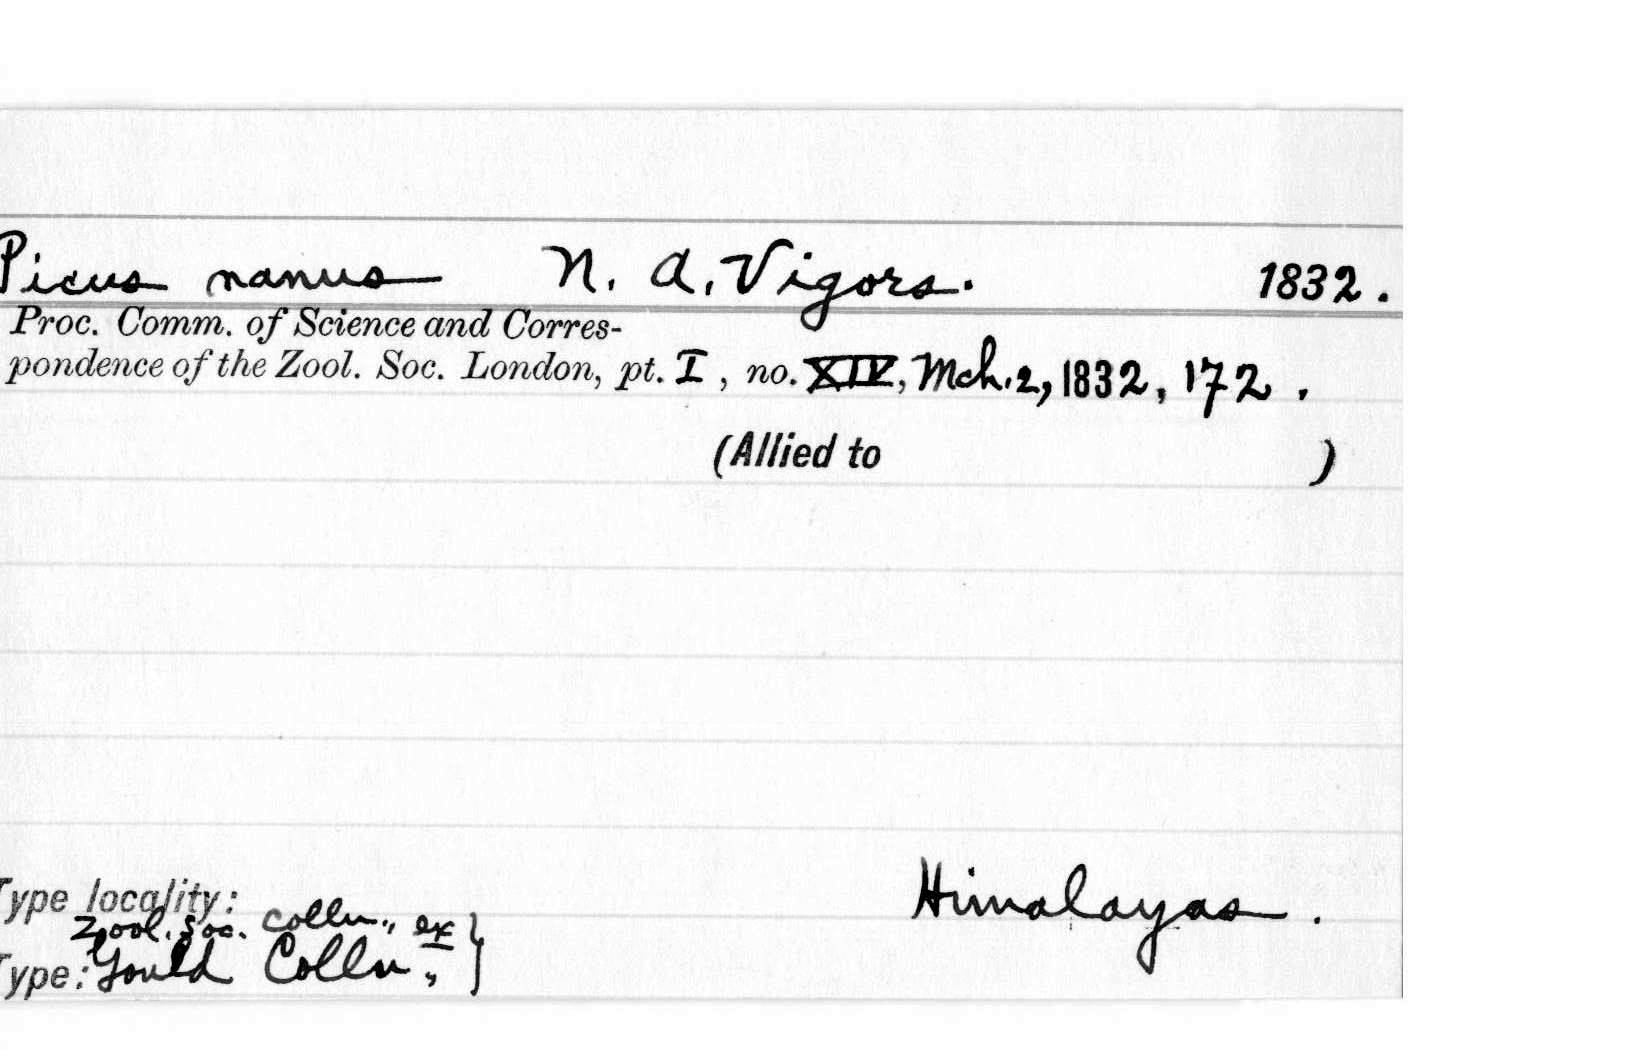 Picus nanus N. A. Vigors. 1832.
Proc. Comm. of Science and Corres-
pondence of the Zool. Soc. London, pt. I, no. XIV, Mch. 2, 1832, 172.
(Allied to )
Type locality: Himalayas.
Zool. Soc. colln., ex
Type: Gould Colln., }